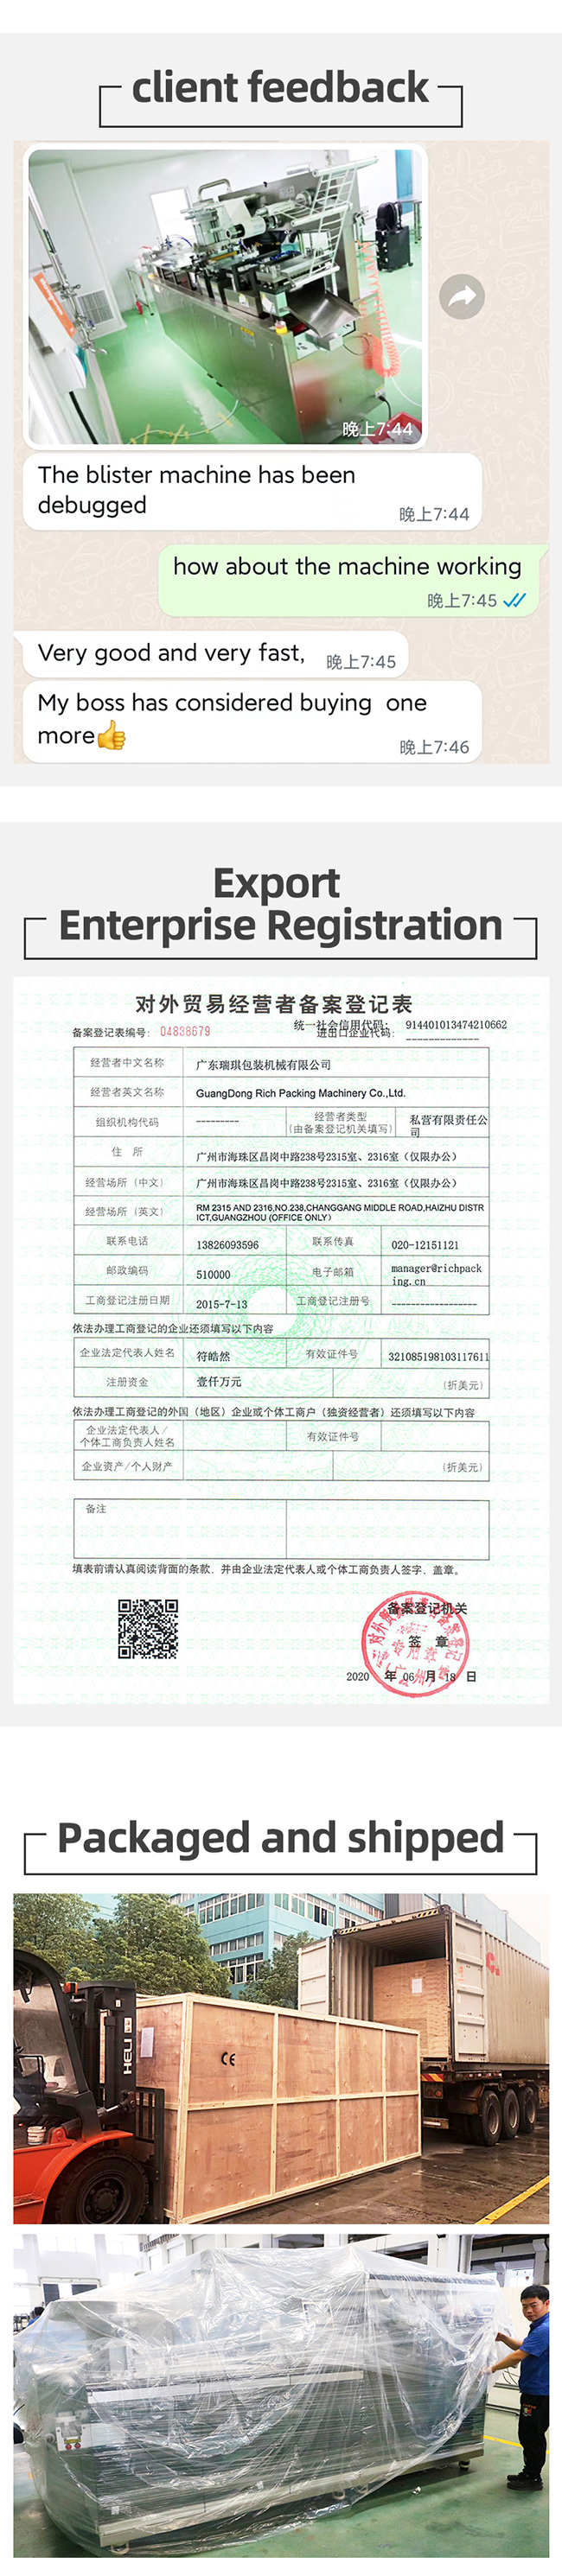 client feedback
晚上7:44
The blister machine has been
debugged
晚上7:44
how about the machine working
晚上7:45
Very good and very fast,
晚上7:45
My boss has considered buying one
more👍
晚上7:46
Export
Enterprise Registration
对外贸易经营者备案登记表
统一社会信用代码： 914401013474210662
备案登记表编号： 04838679
进出口企业代码： -------------
经营者中文名称 广东瑞琪包装机械有限公司
经营者英文名称 GuangDong Rich Packing Machinery Co.,Ltd.
组织机构代码 ---------
经营者类型
(由备案登记机关填写)
私营有限责任公
司
住 所 广州市海珠区昌岗中路238号2315室、2316室（仅限办公）
经营场所（中文） 广州市海珠区昌岗中路238号2315室、2316室（仅限办公）
经营场所（英文） RM 2315 AND 2316,NO.238,CHANGGANG MIDDLE ROAD,HAIZHU DISTR
ICT,GUANGZHOU (OFFICE ONLY）
联系电话 13826093596 联系传真 020-12151121
邮政编码 510000 电子邮箱 manager@richpack
ing.cn
工商登记注册日期 2015-7-13 工商登记注册号 -----------------
依法办理工商登记的企业还须填写以下内容
企业法定代表人姓名 符皓然 有效证件号 321085198103117611
注册资金 壹仟万元 (折美元)
依法办理工商登记的外国（地区）企业或个体工商户（独资经营者）还须填写以下内容
企业法定代表人/
个体工商负责人姓名
有效证件号
企业资产/个人财产 (折美元)
备注
填表前请认真阅读背面的条款、并由企业法定代表人或个体工商负责人签字、盖章。
备案登记机关
签 章
专用章
(广州)
2020 年 06 月 18 日
Packaged and shipped
HELI
CE